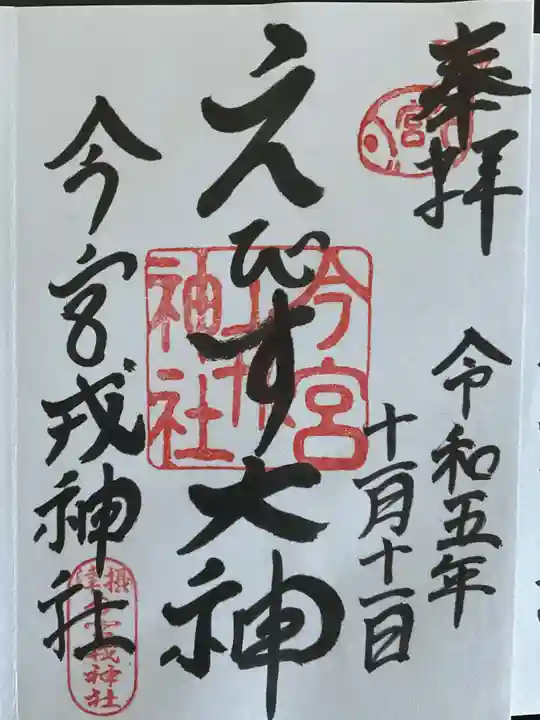 奉拝
令和五年
十一月十一日
えびす大神
今宮戎神社
今宮
戎
神社